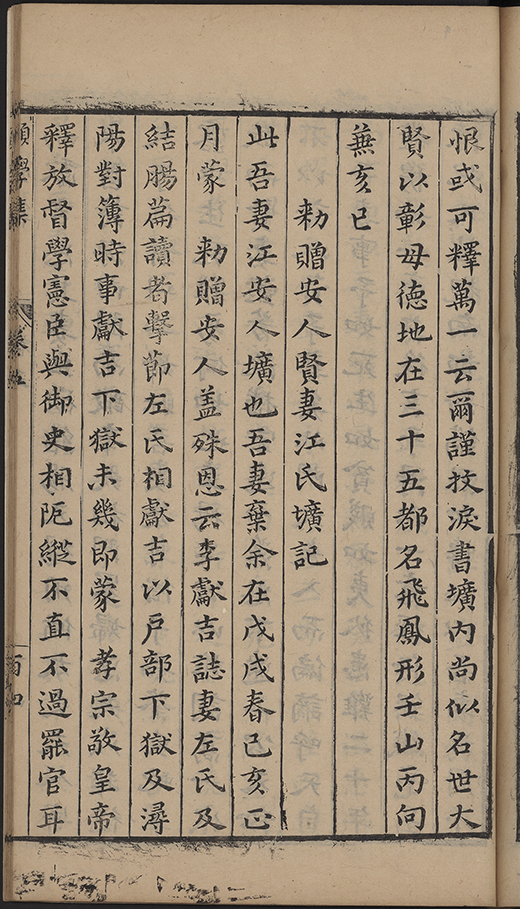 恨或可釋萬一云爾謹抆淚書壙内尚俟名世大
賢以彰母德地在三十五都名飛鳳形壬山丙向
蕪亥巳
勑贈安人賢妻江氏壙記
此吾妻江安人壙也吾妻棄余在戊戌春己亥正
月蒙 勑贈安人盖殊恩云李獻吉誌妻左氏及
結腸篇讀者擊節左氏相獻吉以戶部下獄及潯
陽對簿時事獻吉下獄未幾即蒙 孝宗敬皇帝
釋放督學憲臣與御史相阨縱不直不過罷官耳
願學集
卷五